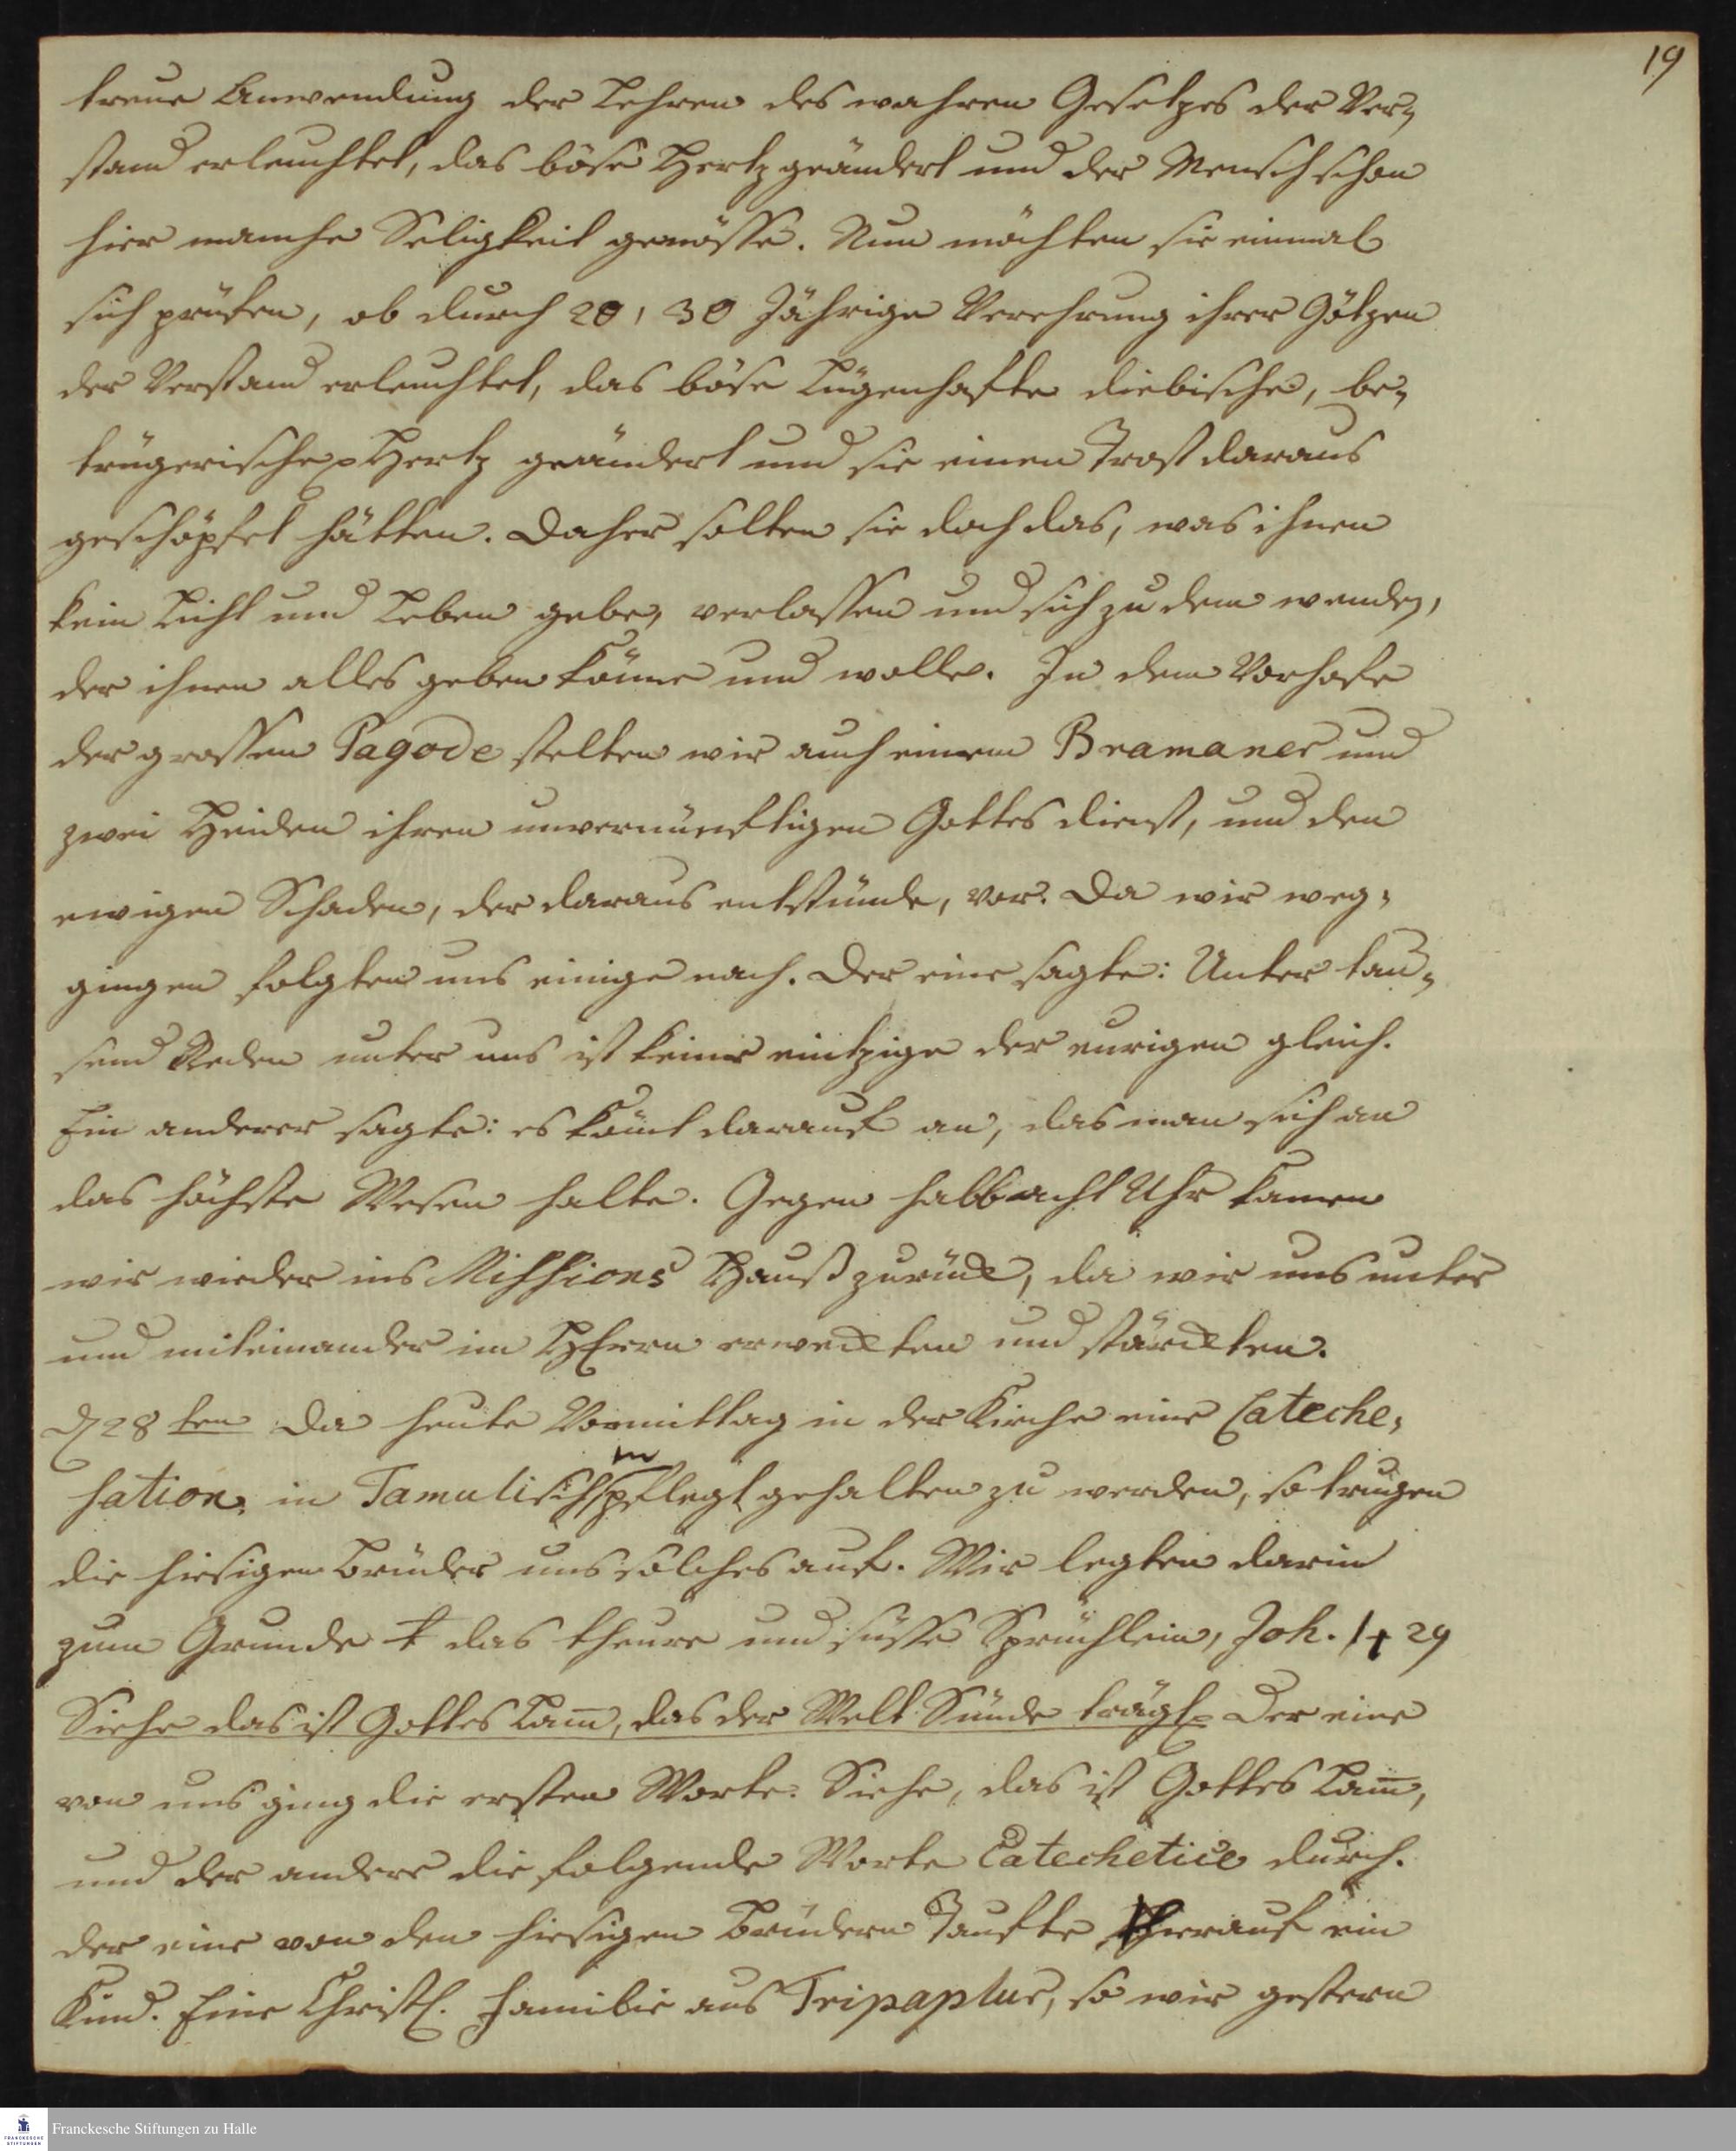 19
treue Anwendung der Lehren des wahren Gesetzes der Ver-
stand erleuchtet, das böse Hertz geändert und der Mensch schon
hier manche Seligkeit genösse. Nun möchten sie einmal
sich prüfen, ob durch 20, 30 Jährige Verehrung ihrer Götzen
der Verstand erleuchtet, das böse Lügenhafte diebische, be-
trügerische Hertz geändert und sie einen Trost daraus
geschöpfet hätten. Daher solten sie doch das, was ihnen
kein Licht und Leben gebe, verlassen und sich zu dem wenden,
der ihnen alles geben könne und wolle. In dem Vorhofe
der grossen Pagode stelten wir auch einem Bramaner und
zwei Heiden ihren unvernünftigen Gottes dienst, und den
ewigen Schaden, der daraus entstünde, vor. Da wir weg-
gingen folgten uns einige nach. Der eine sagte: Unter tau-
send Reden unter uns ist keine eintzige der eurigen gleich.
Ein anderer sagte: es kom̄t darauf an, das man sich an
das höchste Wesen halte. Gegen halb acht Uhr kamen
wir wieder ins Missions Hauß zurück, da wir uns unter
und miteinander im HErrn erweckten und stärckten.
D 28ten Da heute Vormittag in der Kirche eine Cateche-
sation in Tamulischen pflegt gehalten zu werden, so trugen
die hiesigen Brüder uns solches auf. Wir legten darin
zum Grunde das theure und süsse Sprüchlein, Joh. 1 + 29
Siehe das ist Gottes Lam̄, das der Welt Sünde trägt. Der eine
von uns ging die ersten Worte: Siehe, das ist Gottes Lam̄,
und der andere die folgende Worte Catechetice durch.
der eine von den hiesigen Brüdern Taufte hierauf ein
Kind. Eine Christl. Familie aus Tripaplur, so wir gestern
Franckesche Stiftungen zu Halle
FRANCKESCHE
STIFTUNGEN